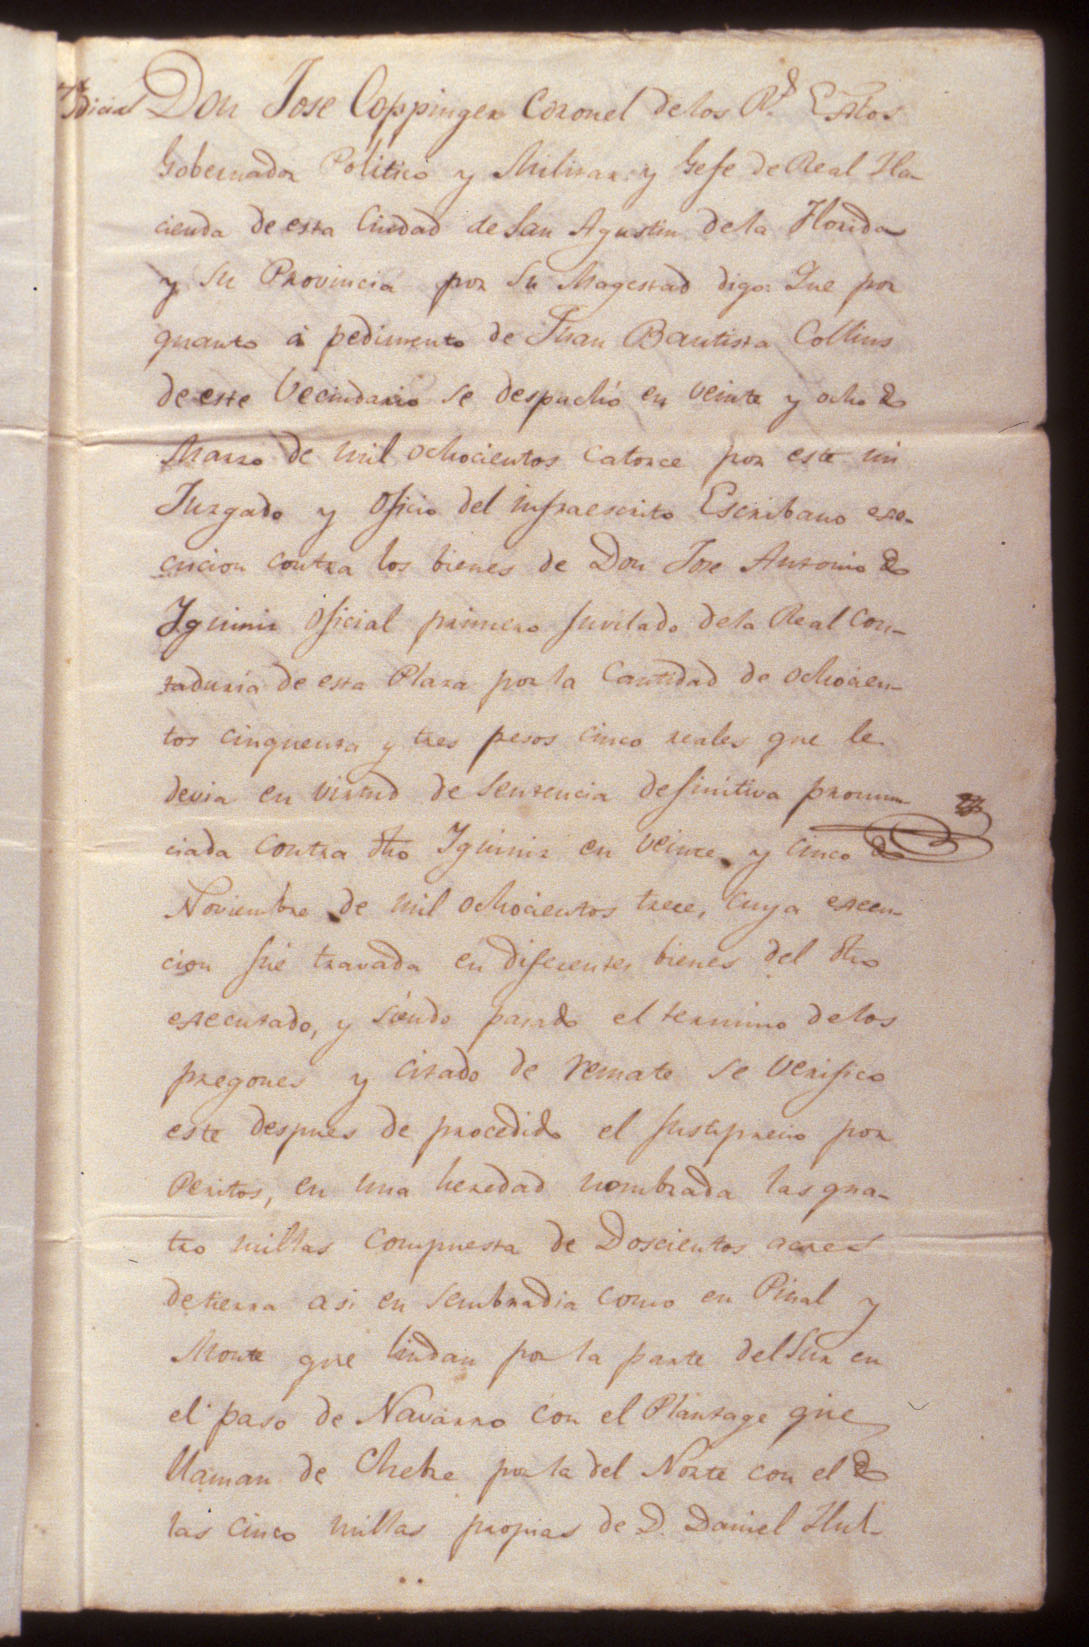 dicial Don Jose Coppinger Coronel de los Rs. Extos
Gobernador Politico y Militar y Gefe de Real Ha-
cienda de esta Ciudad de San Agustin de la Florida
y su Provincia por su Magestad digo: Que por
quanto á pedimento de Juan Bautista Collins
de este Vecindario se despachó en veinte y ocho de
Marzo de mil ochocientos catorce por este mi
Juzgado y oficio del infraescrito Escribano exe-
cucion contra los bienes de Don Jose Antonio de
Yguiniz oficial primero Juvilado de la Real Con-
taduria de esta Plaza por la Cantidad de ochocien-
tos cinquenta y tres pesos cinco reales que le
devia en virtud de Sentencia definitiva pronun-
ciada contra dho Yguiniz en veinte y cinco de
Noviembre de mil ochocientos trece, cuya execu-
cion fué travada en diferentes bienes del dho
executado, y siendo pasado el termino de los
pregones y citado de remate se verifico
este despues de procedido el Justiprecio por
Peritos, en una heredad nombrada las qua-
tro millas compuesta de Doscientos acres
de tierra asi en sembradia como en Pinal y
Monte que lindan por la parte del Sur en
el paso de Navarro con el Plantage que
llaman de Cheke por la del Norte con el de
las cinco millas propias de D. Daniel Hul-